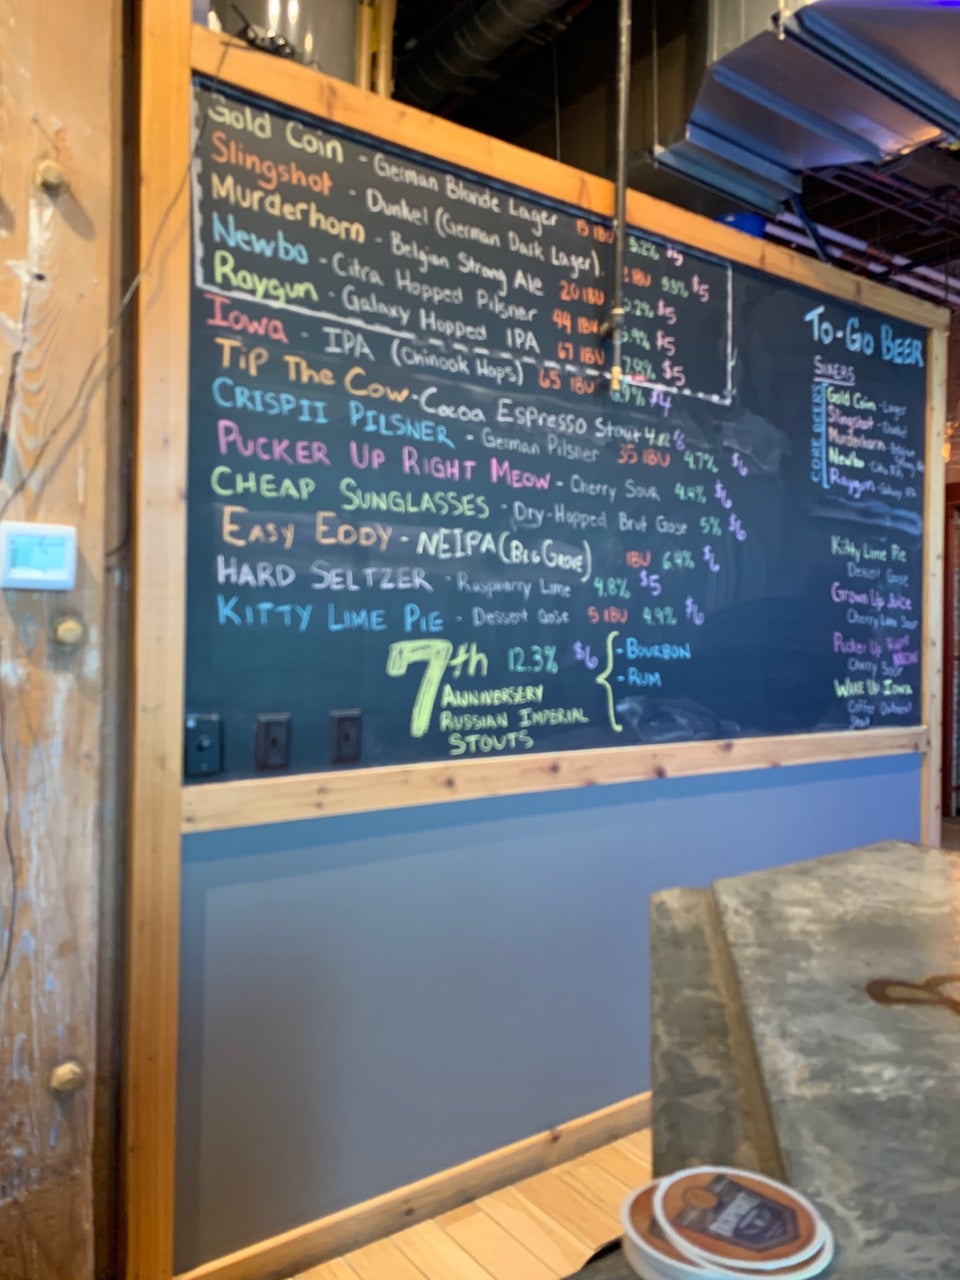 Gold Coin - German Blonde Lager 15 IBU 5.2% $5
Slingshot - Dunkel (German Dark Lager). IBU $5
Murderhorn - Belgian Strong Ale 20 IBU $5
Newbo - Citra Hopped Pilsner 44 IBU $5
Raygun - Galaxy Hopped IPA 67 IBU $5
Iowa - IPA (Chinook Hops) 65 IBU $4
Tip The Cow - Cocoa Espresso Stout
CRISPII PILSNER - German Pilsner 35 IBU 4.7% $6
PUCKER UP RIGHT MEOW - Cherry Sour 4.4% $6
CHEAP SUNGLASSES - Dry-Hopped Brut Gose 5% $6
EASY EDDY - NEIPA (BIG GROVE) IBU 6.4% $6
HARD SELTZER - Raspberry Lime 4.8% $5
KITTY LIME PIE - Dessert Gose 5 IBU 4.9% $6
7th 12.3% $6 { - BOURBON
- RUM
ANNIVERSERY
RUSSIAN IMPERIAL
STOUTS
TO-GO BEER
SIXERS
CORE BEERS
Gold Coin - Lager
Slingshot - Dunkel
Murderhorn - Belgian
Newbo
Raygun
Kitty Lime Pie
Dessert Gose
Grown Up Juice
Cherry Lime Sour
Pucker Up Right
MEOW
Cherry Sour
WAKE UP IOWA
Coffee Oatmeal
Stout